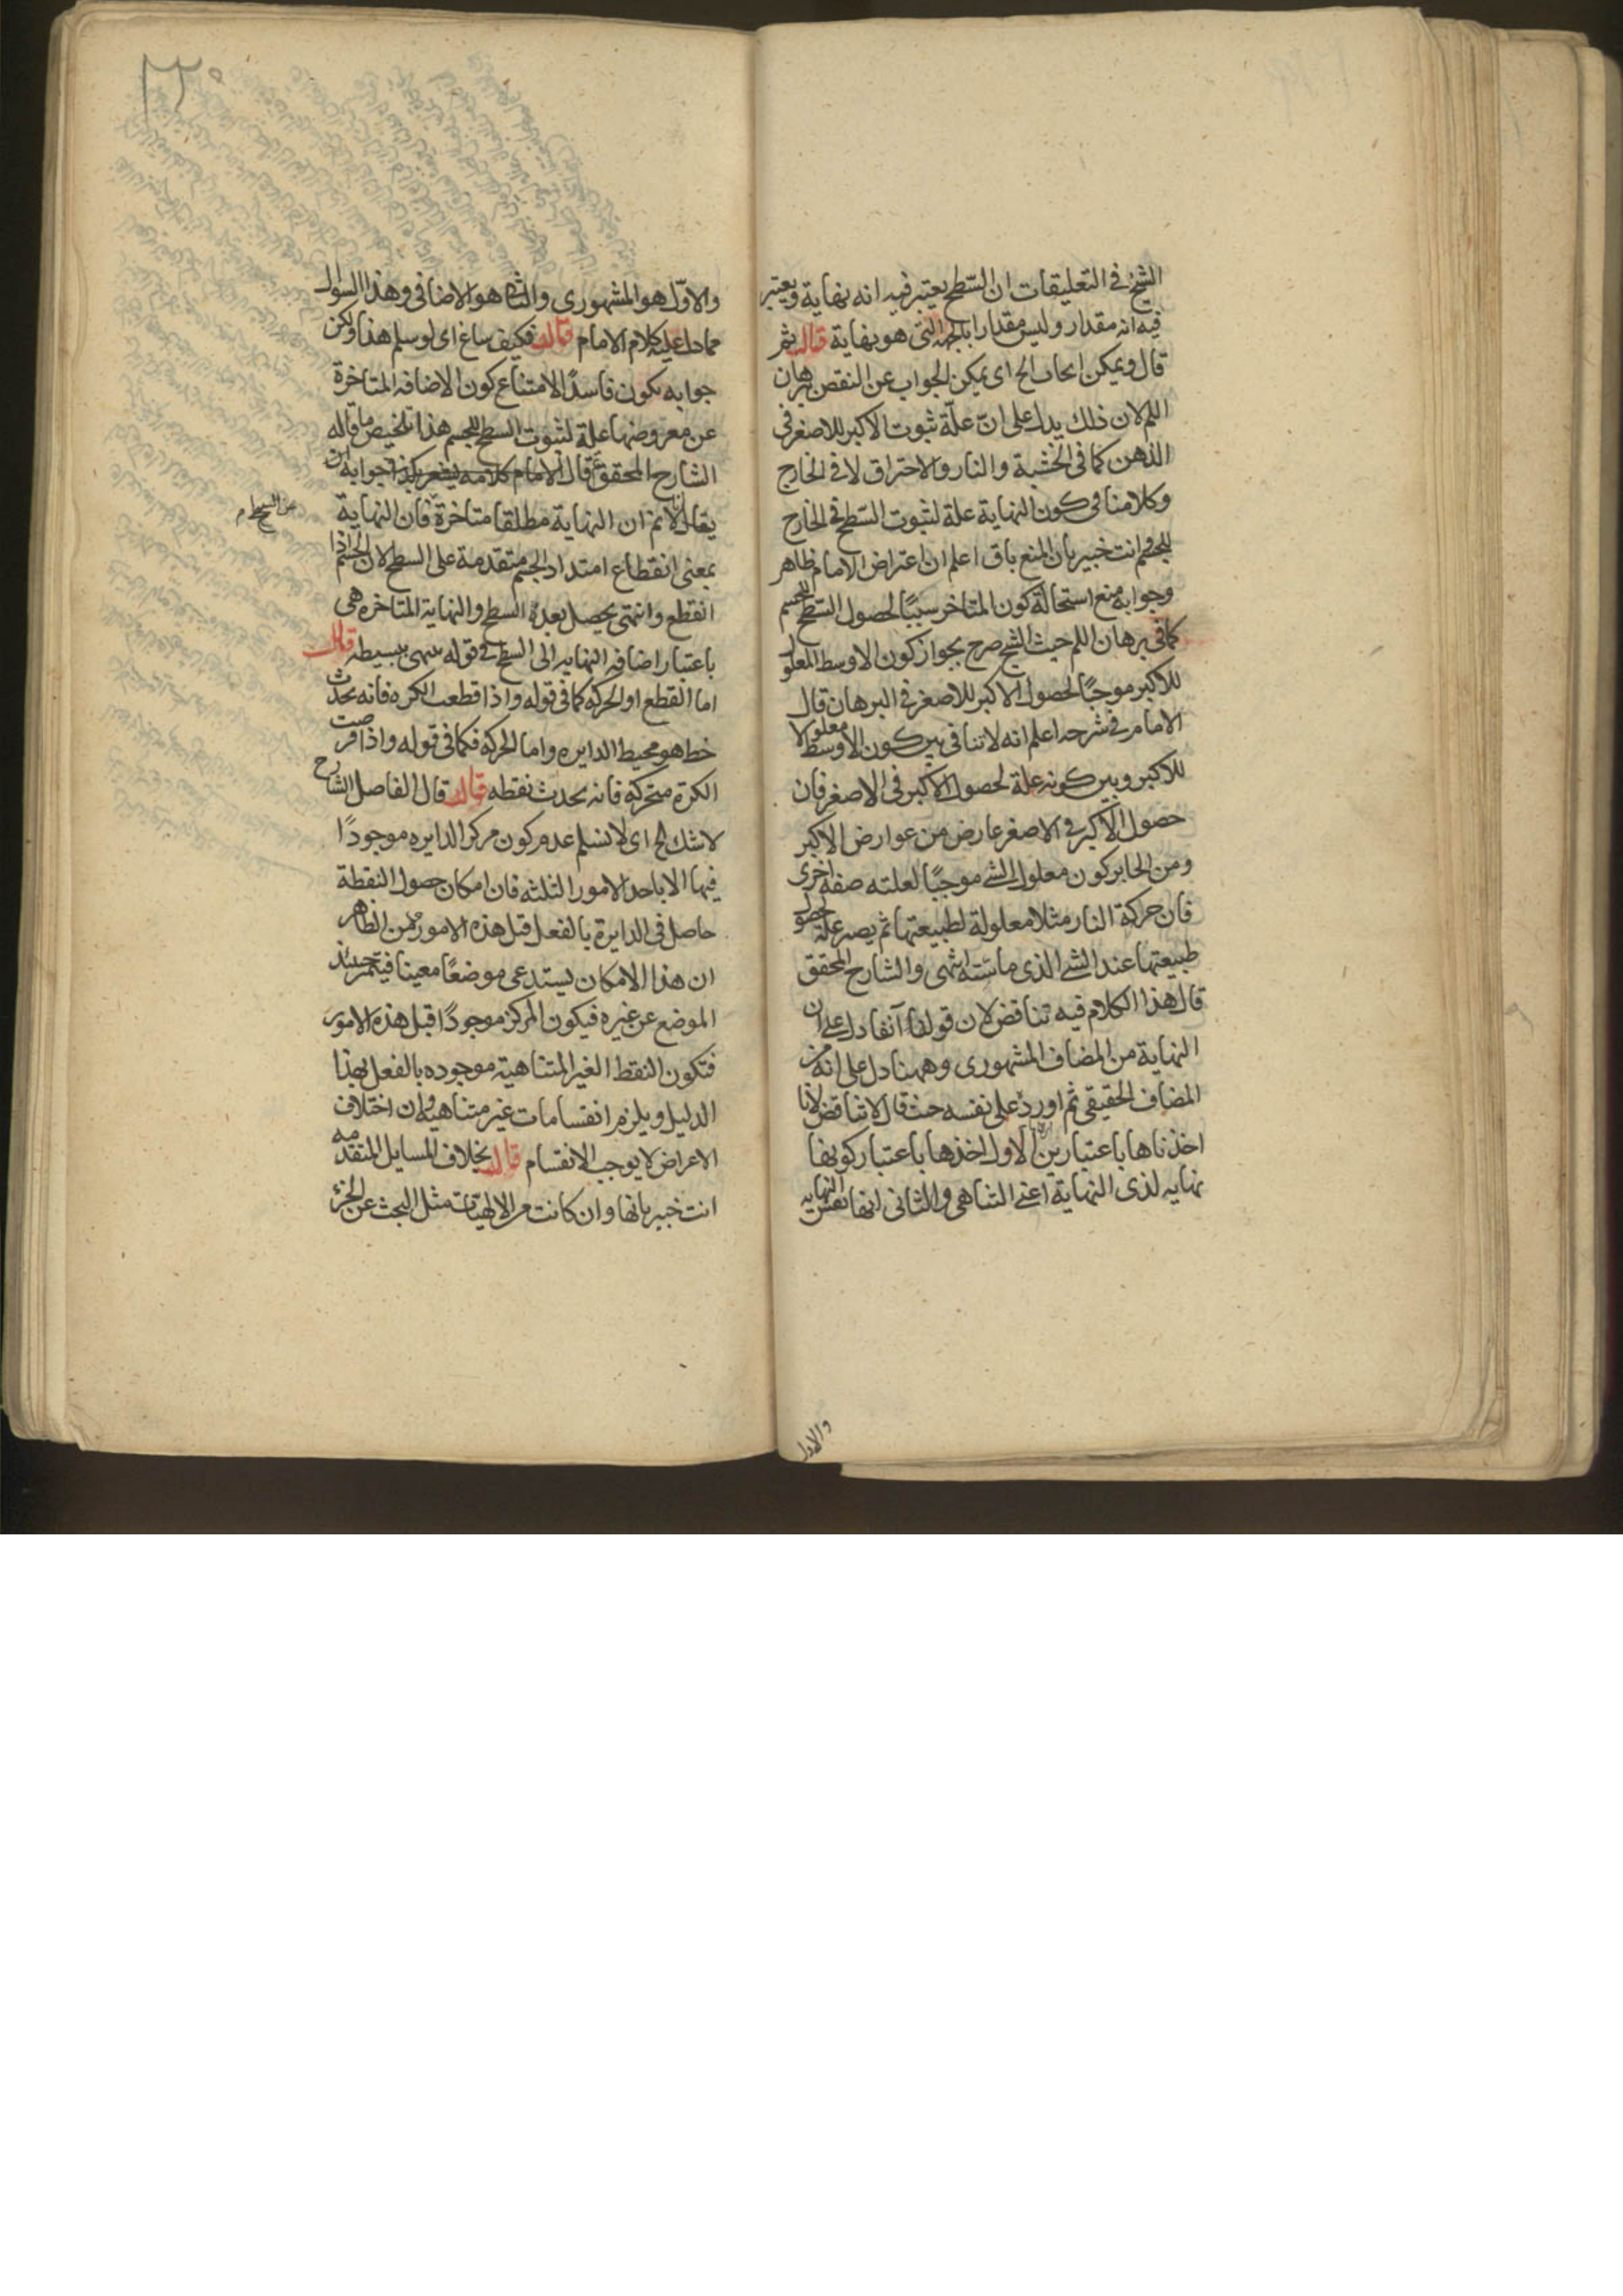 الشيخ في التعليقات ان السّطح يعتبر فيه انه نهاية ويعتبر
فيه انه مقدار وليس مقدارا بالجهة التي هو نهاية قال ثم
قال ويمكن ان يجاب الخ اى يمكن الجواب عن النقض ببرهان
اللم لان ذلك يدل على انّ علّة ثبوت الاكبر للاصغر فى
الذهن كما فى الخشبة والنار والاحتراق لا فى الخارج
وكلامنا فى كون النهاية علة لثبوت السّطح فى الخارج
للجسم وانت خبير بان المنع باق اعلم ان اعتراض الامام ظاهر
وجوابه منع استحالة كون المتاخر سببًا لحصول السّطح للجسم
كما فى برهان اللم حيث الشيخ صرح بجواز كون الاوسط المعلول
للاكبر موجبًا لحصول الاكبر للاصغر فى البرهان قال
الامام فى شرحه اعلم انه لا تنافى بين كون الاوسط معلولا
للاكبر وبين كونه علة لحصول الاكبر فى الاصغر فان
حصول الاكبر فى الاصغر عارض من عوارض الاكبر
ومن الجايز كون معلول الشى موجبًا لعلته صفة اخرى
فان حركة النار مثلا معلولة لطبيعتها ثم يصير علة لحصول
طبيعتها عند الشى الذى ماسّته انتهى والشارح المحقق
قال هذا الكلام فيه تناقض لان قولنا آنفا دل على ان
النهاية من المضاف المشهورى وههنا دل على انه من
المضاف الحقيقى ثم اورد على نفسه حيث قال لا تناقض لانا
اخذناها باعتبارين الاول اخذها باعتبار كونها
نهايه لذى النهاية اعنى التناهى والثانى انها نفس النهايه
والاول
والاوّل هو المشهورى والثانى هو الاضافى وهذا السوال
مما دل عليه كلام الامام قال فكيف ساغ اى لو سلم هذا ولكن
جوابه يكون فاسدًا لامتناع كون الاضافه المتاخرة
عن معروضها علة لثبوت السطح للجسم هذا تلخيص ما قاله
الشارح المحقق قال الامام كلامه جوابه ان
يقال لانم ان النهاية مطلقا متاخرة فان النهاية
عن السطح م
بمعنى انقطاع امتداد الجسم متقدمة على السطح لان الجسم اذا
انقطع وانتهى يحصل بعده السطح والنهاية المتاخره هى
باعتبار اضافه النهايه الى السطح فى قوله ينتهى ببسيطه قال
اما القطع او الحركه كما فى قوله واذا قطعت الكره فانه يحدث
خط هو محيط الدايره واما الحركه فكما فى قوله واذا فرضت
الكرة متحركه فانه يحدث نقطه قال قال الفاضل الشارح
لا شك الخ اى لا نسلم عدم كون مركز الدايره موجودًا
فيها الا باحد الامور الثلثه فان امكان حصول النقطة
حاصل فى الدايرة بالفعل قبل هذه الامور ومن الظاهر
ان هذا الامكان يستدعى موضعًا معينا فيتميز حينئذ
الموضع عن غيره فيكون المركز موجودًا قبل هذه الامور
فتكون النقط الغير المتناهية موجوده بالفعل بهذا
الدليل ويلزم انقسامات غير متناهيه وان اختلاف
الاعراض لا يوجب الانقسام قال بخلاف المسايل المتقدمه
انت خبير بانها وان كانت من الالهيّات مثل البحث عن الجزء